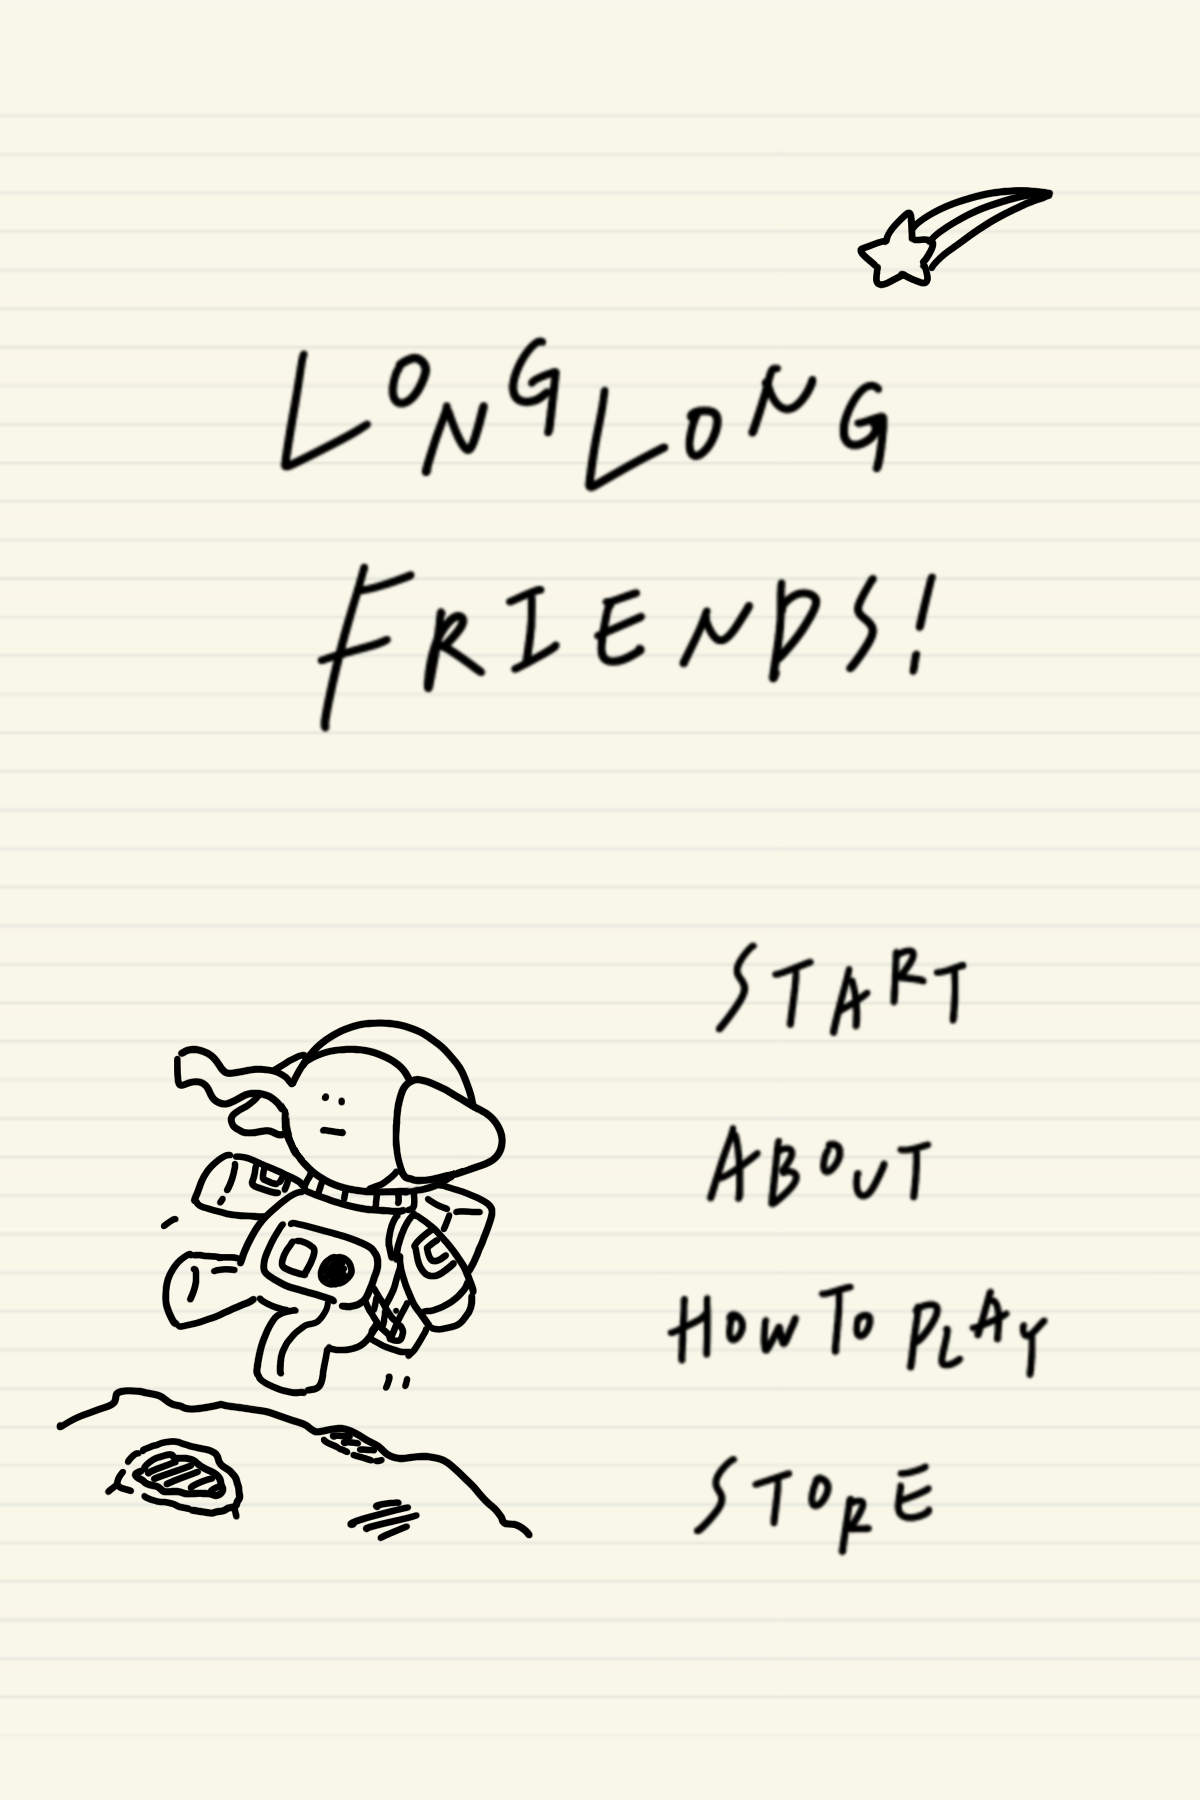 LONG LONG
FRIENDS!
START
ABOUT
HOW TO PLAY
STORE